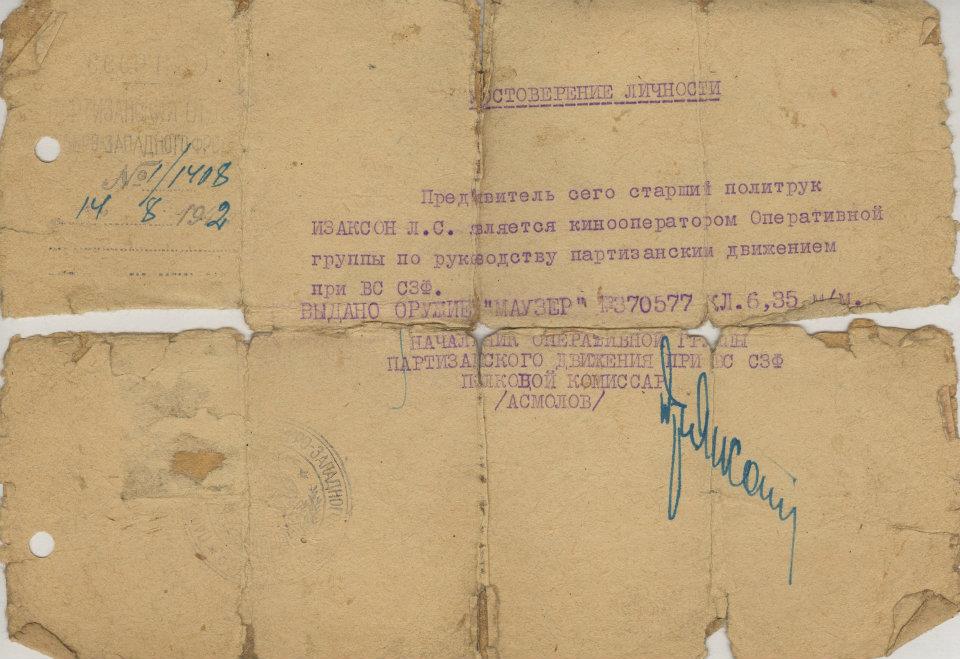 УДОСТОВЕРЕНИЕ ЛИЧНОСТИ
№ 1/1408
14 8 1942
Предявитель сего старший политрук
ИЗАКСОН Л.С. является кинооператором Оперативной
группы по руководству партизанским движением
при ВС СЗФ.
ВЫДАНО ОРУЖИЕ "МАУЗЕР" №370577 КЛ.6,35 м/м.
НАЧАЛЬНИК ОПЕРАТИВНОЙ ГРУППЫ
ПАРТИЗАНСКОГО ДВИЖЕНИЯ ПРИ ВС СЗФ
ПОЛКОВОЙ КОМИССАР
/АСМОЛОВ/